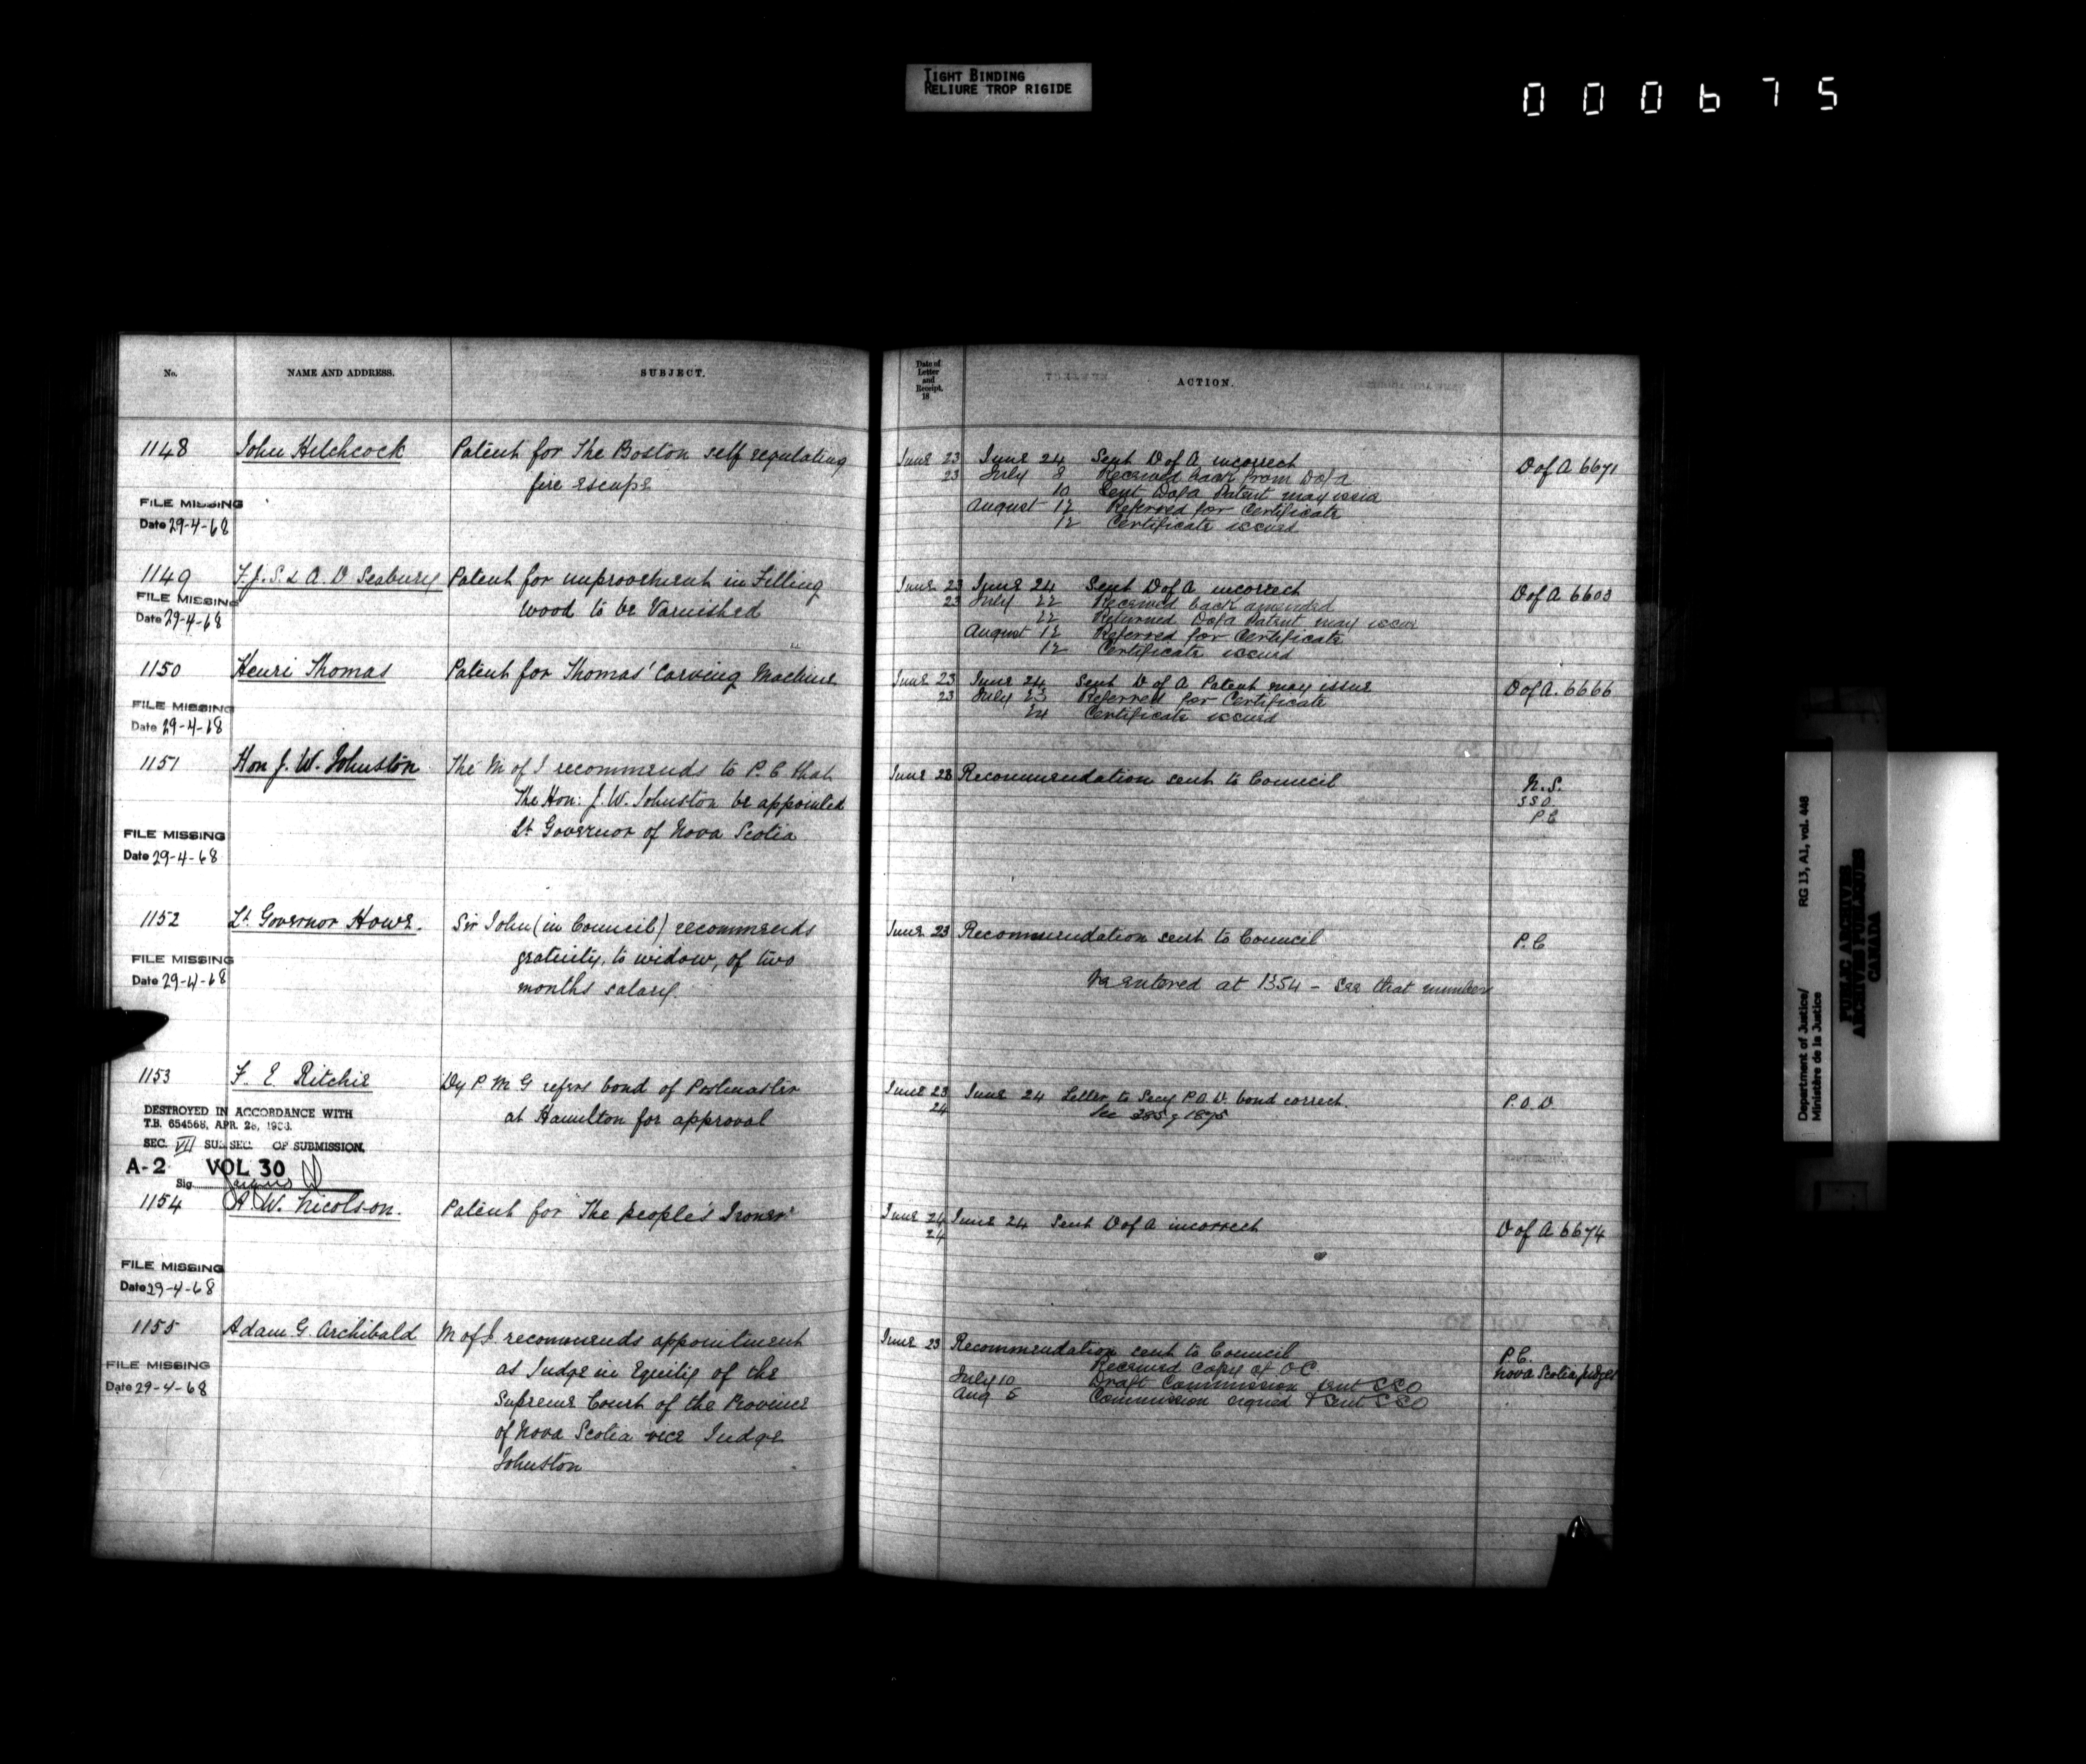 TIGHT BINDING
RELIURE TROP RIGIDE
000675
No.
NAME AND ADDRESS.
SUBJECT.
Date of
Letter
and
Receipt,
18
ACTION.
1148 John Hitchcock Patent for The Boston self regulating
fire escape
FILE MISSING
Date 29-4-68
June 23 June 24 Sent D of A incorrect D of A 6671
23 July 8 Received back from D of A
10 Sent D of A Patent may issue
August 12 Referred for Certificate
12 Certificate issued
1149 F. J. S. & A. D Seabury Patent for improvement in Filling
wood to be Varnished
FILE MISSING
Date 29-4-68
June 23 June 24 Sent D of A incorrect D of A 6603
23 July 22 Received back amended
22 Returned D of A Patent may issue
August 12 Referred for Certificate
12 Certificate issued
1150 Henri Thomas Patent for Thomas' Carving Machine
FILE MISSING
Date 29-4-68
June 23 June 24 Sent D of A Patent may issue D of A. 6666
23 July 23 Referred for Certificate
24 Certificate issued
1151 Hon J. W. Johnston The M of J recommends to P. C that
The Hon: J. W. Johnston be appointed
Lt Governor of Nova Scotia
FILE MISSING
Date 29-4-68
June 23 Recommendation sent to Council N.S.
SSO.
PC
1152 Lt. Governor Howe. Sir John (in Council) recommends
gratuity, to widow, of two
months salary.
FILE MISSING
Date 29-4-68
June 23 Recommendation sent to Council P.C
Re entered at 1354 - See that number
1153 F. E. Ritchie Dy P. M G refers bond of Postmaster
at Hamilton for approval
DESTROYED IN ACCORDANCE WITH
T.B. 654568, APR. 26,
SEC. VII SUB SEC. OF SUBMISSION.
A-2 VOL 30
Sig
June 23 June 24 Letter to Secy P.O.D. bond correct P.O.D.
24 See 285 of 1875
1154 A. W. Nicolson. Patent for "The people's Ironer"
FILE MISSING
Date 29-4-68
June 24 June 24 Sent D of A incorrect D of A 6674
24
1155 Adam G. Archibald M of J. recommends appointment
as Judge in Equity of the
Supreme Court of the Province
of Nova Scotia vice Judge
Johnston
FILE MISSING
Date 29-4-68
June 23 Recommendation sent to Council P.C.
Received Copy of OC Nova Scotia judges
July 10 Draft Commission sent SSO
Aug 5 Commission signed & sent SSO
Department of Justice/ RG 13, A1, vol. 448
Ministère de la Justice
PUBLIC ARCHIVES
ARCHIVES PUBLIQUES
CANADA